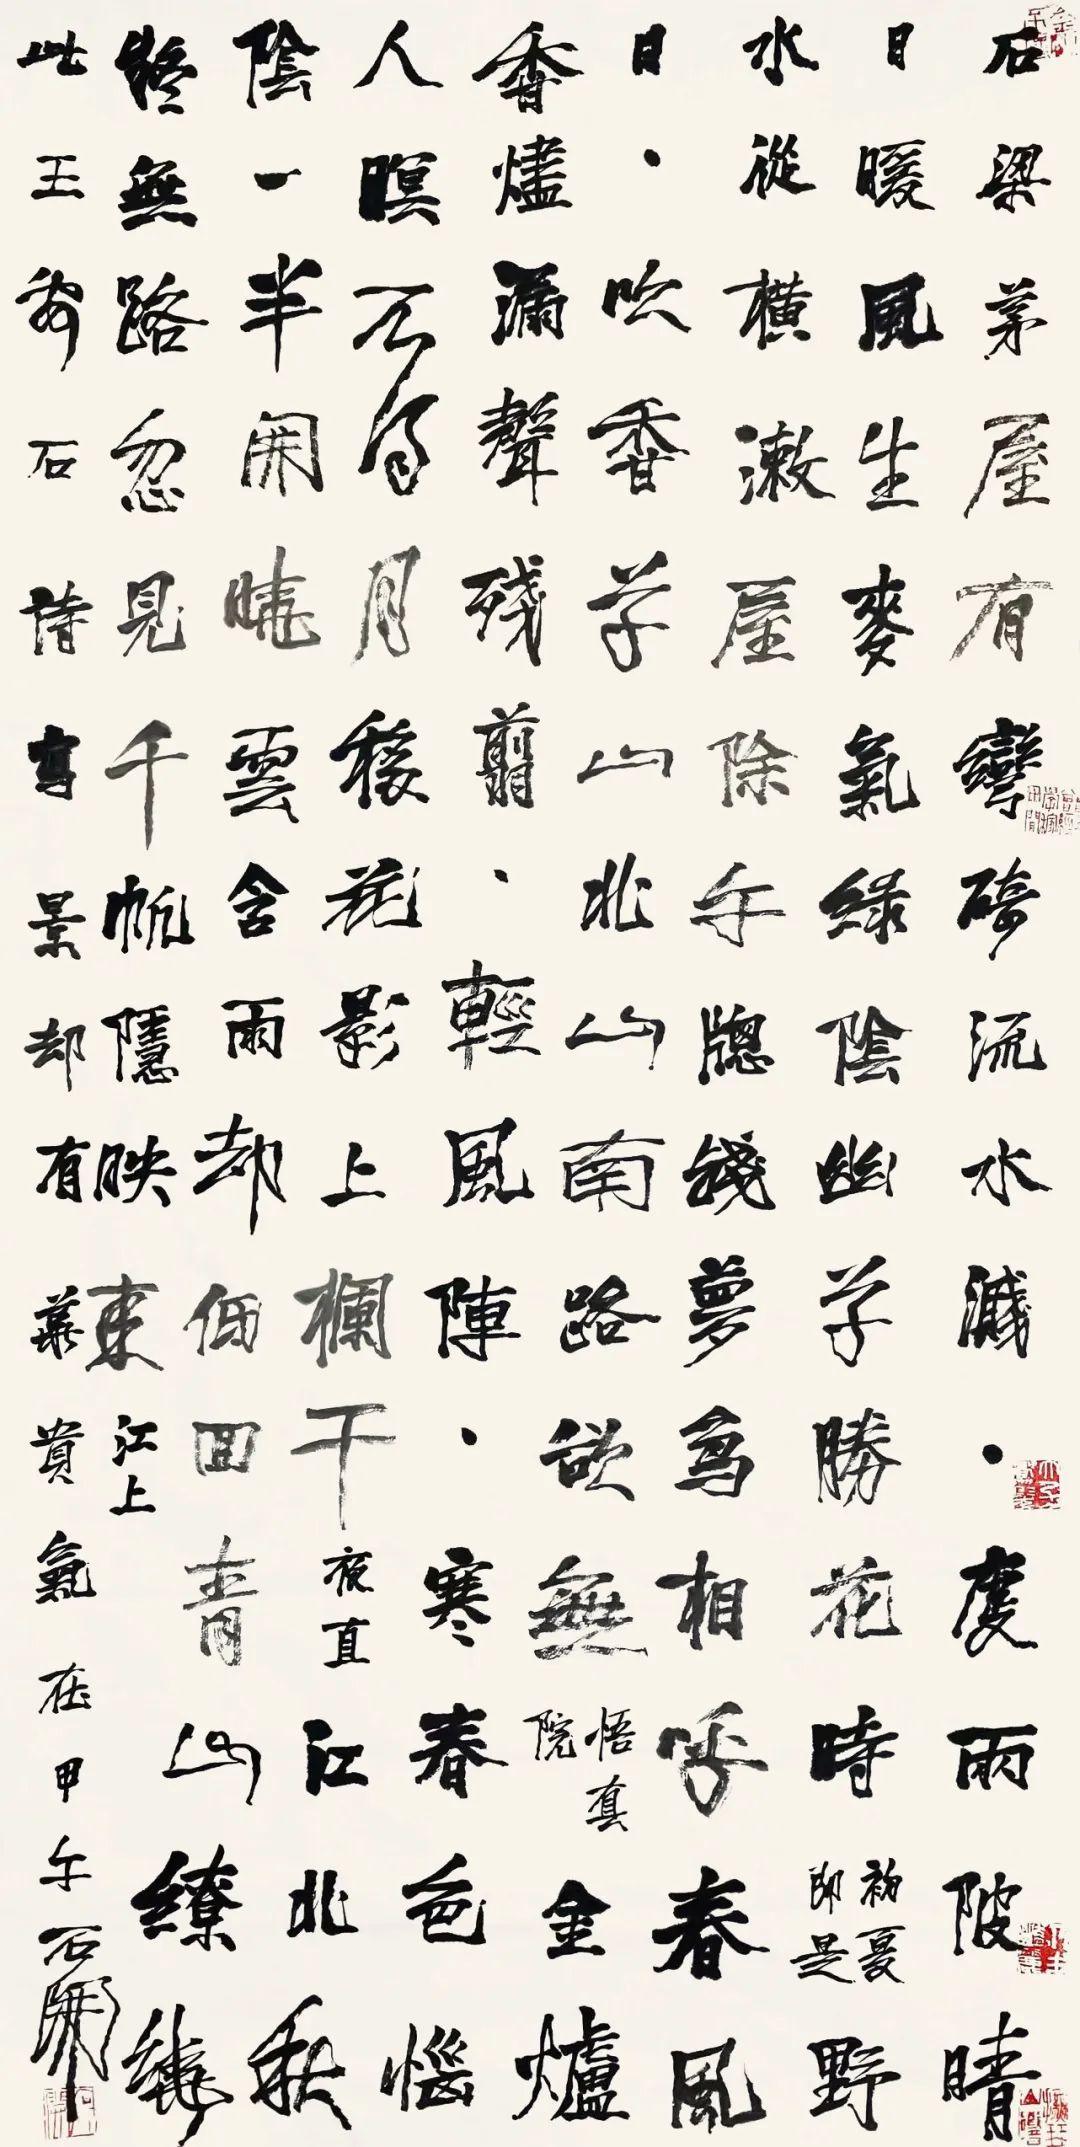 石梁茅屋有彎碕流水濺・度兩陂晴
日暖風生麥氣綠陰幽草勝花時 初夏即是 野
水從橫漱屋除午牕殘夢鳥相呼春風
日・吹香草山北山南路欲無 悟真院 金爐
香燼漏聲殘翦・輕風陣・寒春色惱
人瞑不得月移花影上欄干 夜直 江北秋
陰一半開曉雲含雨却低回青山繚繞
疑無路忽見千帆隱映來 江上
此王安石詩寫景却有華貴氣在甲午石開